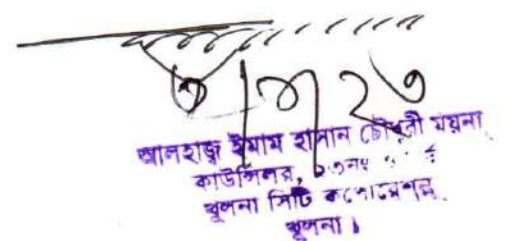 আলহাজ্ব ইমাম হাসান চৌধুরী ময়না
কাউন্সিলর,
খুলনা সিটি কর্পোরেশন,
খুলনা।